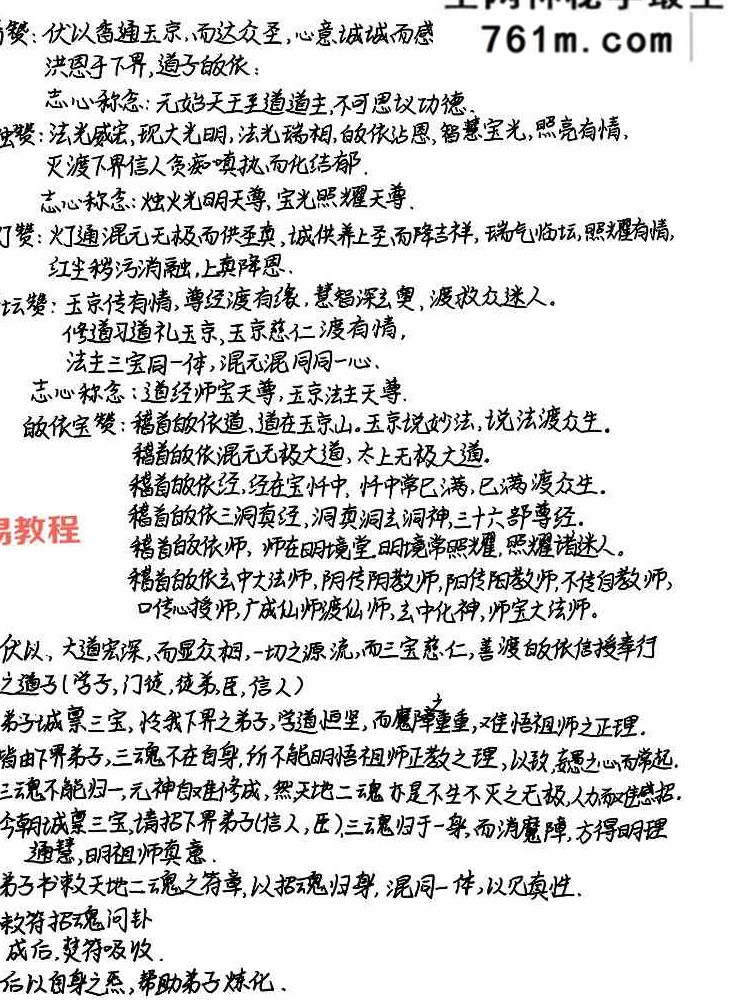 761m.com
赞:伏以香通玉京,而达众圣,心意诚诚而感
洪恩于下界,道子皈依:
志心称念:元始天王至道道主,不可思议功德.
烛赞:法光威宏,现大光明,法光瑞相,皈依沾恩,智慧宝光,照亮有情,
灭渡下界信人贪痴嗔执而化结郁.
志心称念:烛火光明天尊,宝光照耀天尊.
灯赞:灯通混元无极而供圣真,诚供养上圣而降吉祥,瑞气临坛,照耀有情,
红尘秽污消融,上真降恩.
坛赞:玉京传有情,尊经渡有缘,慧智深玄奥,渡救众迷人。
修道习道礼玉京,玉京慈仁渡有情,
法主三宝同一体,混元混同同一心.
志心称念:道经师宝天尊,玉京法主天尊.
皈依宝赞:稽首皈依道,道在玉京山.玉京说妙法,说法渡众生。
稽首皈依混元无极大道,太上无极大道。
稽首皈依经,经在宝忏中,忏中常已满,已满渡众生。
稽首皈依三洞真经,洞真洞玄洞神,三十六部尊经.
易教程
稽首皈依师,师在明境堂.明境常照耀,照耀诸迷人。
稽首皈依玄中大法师,阴传阴教师,阳传阳教师,不传自教师,
口传心授师,广成仙师渡仙师,玄中化神,师宝大法师。
伏以、大道宏深,而显众相,一切之源流,而三宝慈仁,善渡皈依信授奉行
之道子(学子,门徒,徒弟,臣,信人)
弟子城禀三宝,怜我下界之弟子,学道恒坚,而魔障之重重,难悟祖师之正理.
皆由下界弟子,三魂不在自身,所不能明悟祖师正教之理,以致,哀愚之心而常起.
三魂不能归一,元神自难修成,然天地二魂亦是不生不灭之无极,人力而难感招.
今朝诚禀三宝,请招下界弟子(信人,臣),三魂归于一身,而消魔障,方得明理
通慧,明祖师真意.
弟子书敕天地二魂之符章,以招魂归身,混同一体,以见真性.
敕符招魂问卦
成后,焚符吸收.
后以自身之炁,帮助弟子炼化.